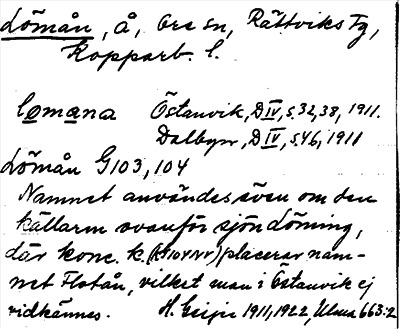 Lömån, å, Ore sn, Rättviks tg,
Kopparb. l.
lomana Östanvik, D IV, s. 32, 38, 1911.
Dalbyn, D IV, s. 46, 1911
Lömån G103, 104
Namnet användes även om den
källarm ovanför sjön Löming,
där konc. k. placerar nam-
net Flotån, vilket man i Östanvik ej
vidkännes. H. Geijer 1911, 1922, Ulma 663:2